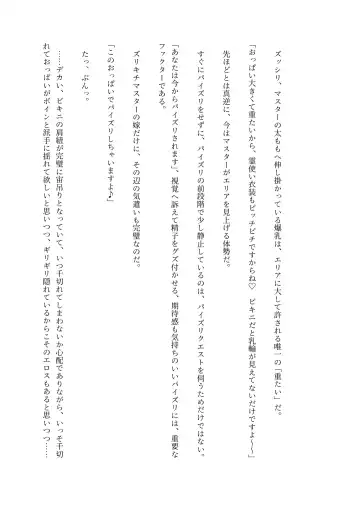 ズッシリ、マスターの太ももへ伸し掛かっている爆乳は、エリアに大して許される唯一の「重たい」だ。
「おっぱい大きくて重たいから、霊使い衣装もビッチビチですからね♡　ビキニだと乳輪が見えてないだけですよ～～」
先ほどとは真逆に、今はマスターがエリアを見上げる体勢だ。
すぐにパイズリをせずに、パイズリの前段階で少し静止しているのは、パイズリクエストを伺うためだけではない。
「あなたは今からパイズリされます」、視覚へ訴えて精子をグズ付かせる、期待感も気持ちのいいパイズリには、重要な
ファクターである。
ズリキチマスターの嫁だけに、その辺の気遣いも完璧なのだ。
「このおっぱいでパイズリしちゃいますよ♪」
たっ、ぷんっ。
……デカい、ビキニの肩紐が完璧に宙吊りとなっていて、いつ千切れてしまわないか心配でありながら、いっそ千切
れておっぱいがボインと派手に揺れて欲しいと思いつつ、ギリギリ隠れているからこそのエロスもあると思いつつ……